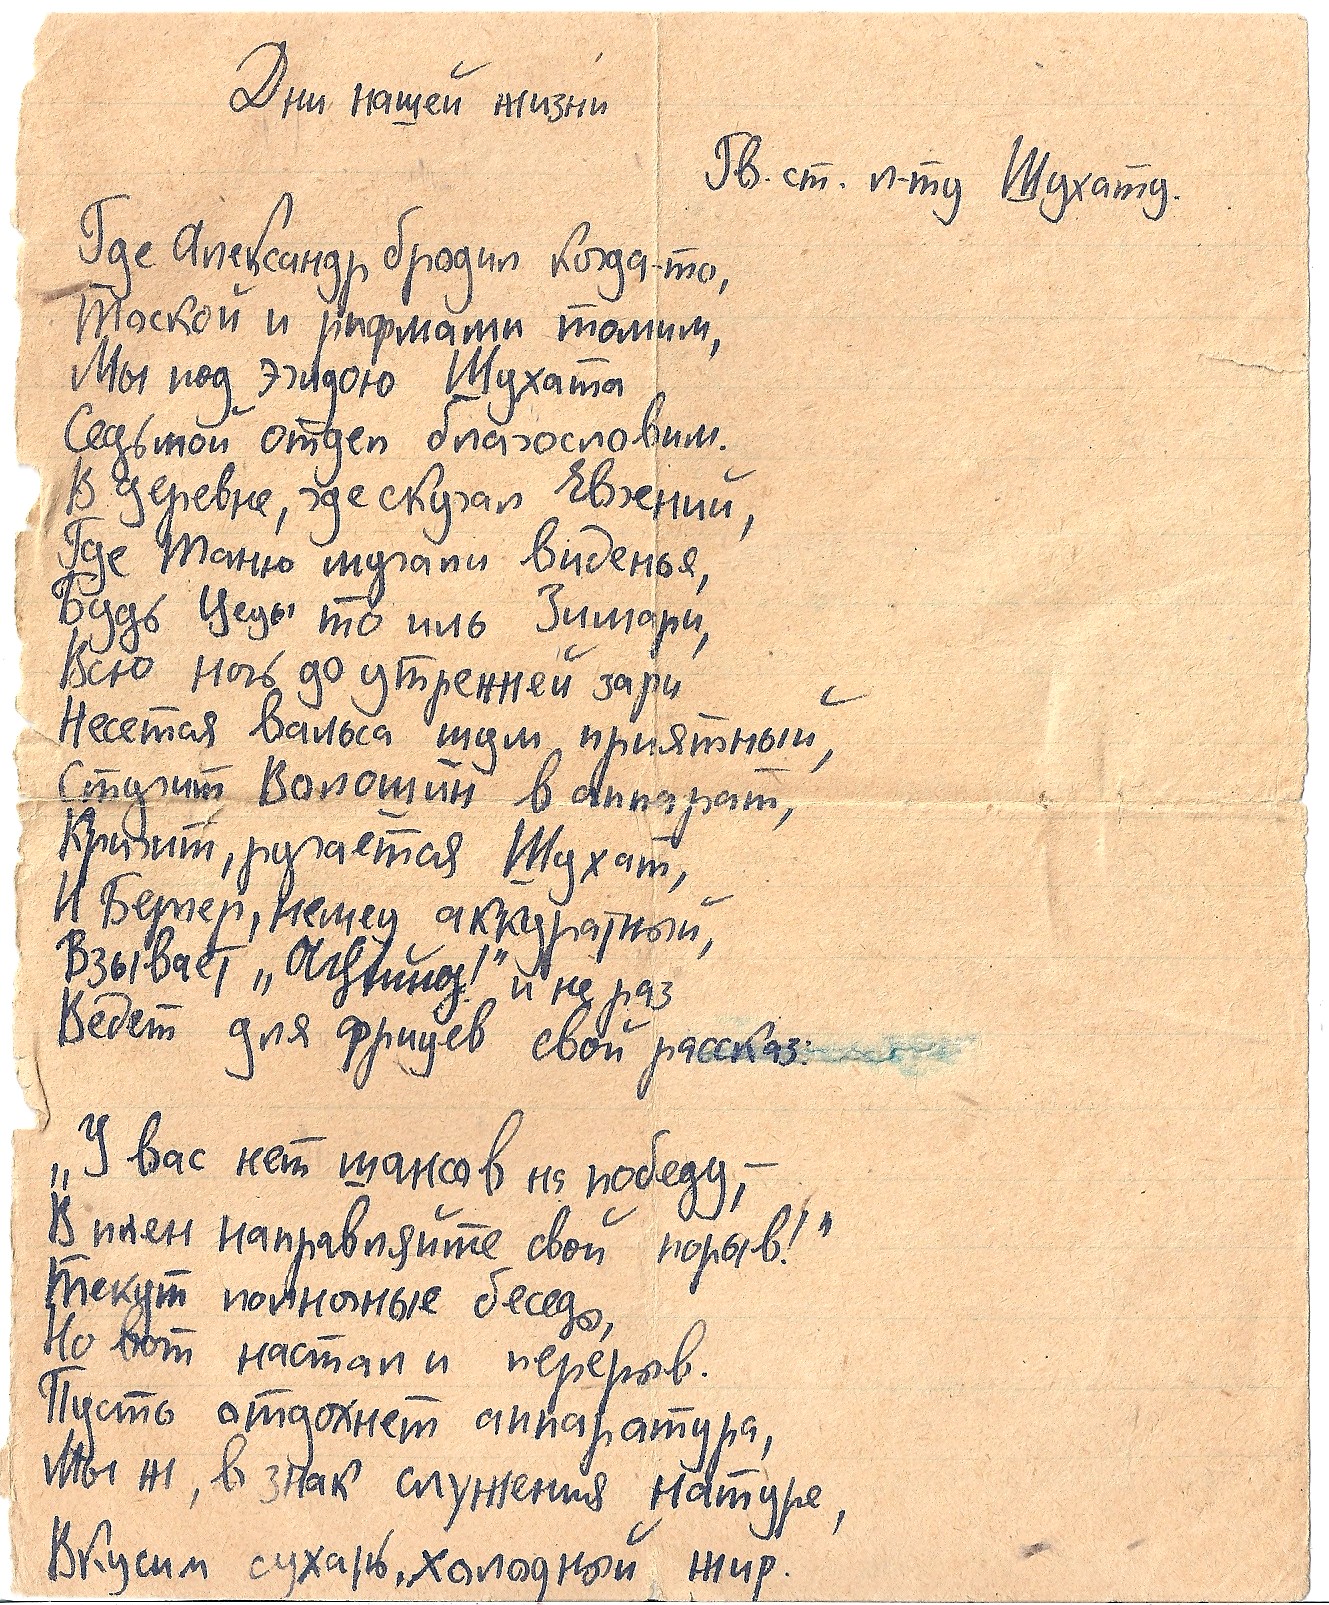 Дни нашей жизни
Гв. ст. л-ту Шухату.
Где Александр бродил когда-то,
Тоской и рифмами томим,
Мы под эгидою Шухата
Седьмой отдел благословим.
В деревне, где скучал Евгений,
Где Таню мучали виденья,
Будь Цеды то иль Зимари,
Всю ночь до утренней зари
Несется вальса шум приятный,
Стучит Волошин в аппарат,
Кричит, ругается Шухат,
И Бергер, немец аккуратный,
Взывает „Ахтунг!" и не раз
Ведет для фрицев свой рассказ:
„У вас нет шансов на победу,—
В плен направляйте свой порыв!"
Текут полночные беседы,
Но вот настал и перерыв.
Пусть отдохнет аппаратура,
Мы ж, в знак служения натуре,
Вкусим сухарь, холодный жир.